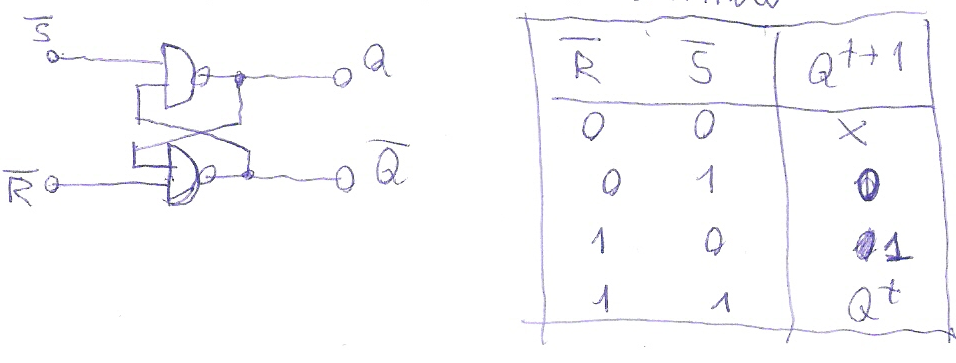 S̅
Q
R̅
Q̅
R̅ S̅ Q^{t+1}
0 0 X
0 1 0
1 0 1
1 1 Q^t